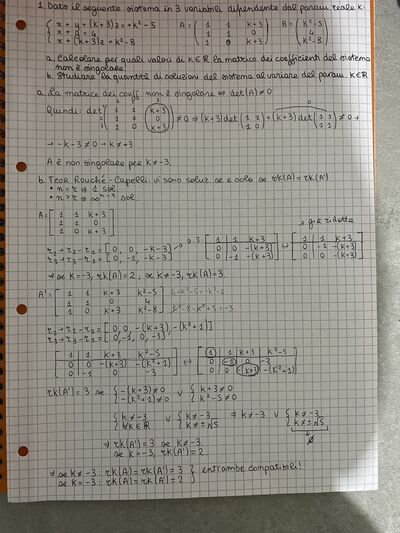 1. Dato il seguente sistema in 3 variabili dipendente dal param. reale k:
{ x + y + (k+3)z = k²-5   A = ( 1 1 k+3   B = ( k²-5
x + y = 4   1 1 0   4
x + (k+3)z = k²-8   1 0 k+3 )   k²-8 )
a. Calcolare per quali valori di k∈R la matrice dei coefficienti del sistema
non è singolare.
b. Studiare la quantità di soluzioni del sistema al variare del param. k∈R
a. La matrice dei coeff. non è singolare ⇔ det(A)≠0
Quindi: det ( 1 1 k+3
1 1 0
1 0 k+3 ) ≠0 ⇒ (k+3) det ( 1 1
1 0 ) + (k+3) det ( 1 1
1 1 ) ≠0 →
→ -k-3≠0 → k≠-3
A è non singolare per k≠-3.
b. Teor. Rouché-Capelli: vi sono soluz. se e solo se rk(A)=rk(A')
• n=r ⇒ 1 sol.
• n>r ⇒ ∞ⁿ⁻ʳ sol.
→ già ridotta
A = [ 1 1 k+3
1 1 0
1 0 k+3 ]
r₂→r₂-r₁=[0, 0, -k-3]
r₃→r₃-r₁=[0, -1, -k-3]
[ 1 1 k+3
0 0 -(k+3)
0 -1 -(k+3) ] ⇔ [ 1 1 k+3
0 -1 -(k+3)
0 0 -(k+3) ]
⇒ se k=-3, rk(A)=2, se k≠-3, rk(A)=3.
A' = [ 1 1 k+3 k²-5
1 1 0 4
1 0 k+3 k²-8 ]
r₂→r₂-r₁=[0, 0, -(k+3), -(k²+1)]
r₃→r₃-r₁=[0, -1, 0, -3]
[ 1 1 k+3 k²-5
0 0 -(k+3) -(k²+1)
0 -1 0 -3 ] ⇔ [ 1 1 k+3 k²-5
0 -1 0 -3
0 0 -(k+3) -(k²+1) ]
rk(A')=3 se { -(k+3)≠0 ∨ { k+3≠0
-(k²+1)≠0   k²-5≠0
{ k≠-3 ∨ { k≠-3 ⇒ k≠-3 ∨ { k≠-3
∀k∈R   k≠±√5   k≠±√5
∅
⇒ rk(A')=3 se k≠-3
se k=-3, rk(A')=2
⇒ se k≠-3: rk(A)=rk(A')=3 } entrambe compatibili!
se k=-3: rk(A)=rk(A')=2